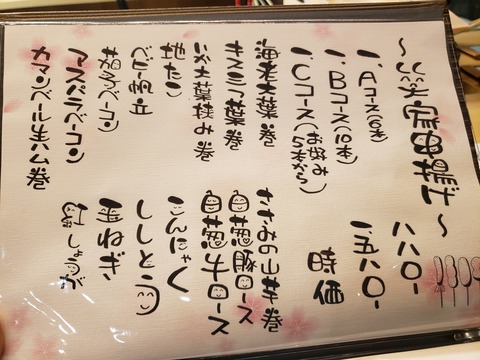 ～笑家串揚げ～
一、Aコース(6本) 八八〇-
一、Bコース(10本) 一、五八〇-
一、Cコース(お好み5本から) 時価
海老大葉巻
キス三つ葉巻
いか大葉挟み巻
地たこ
ベビー帆立
ベーコン
アスパラベーコン
カマンベール生ハム巻
ささみの山芋巻
白葱豚ロース
白葱牛ロース
こんにゃく
ししとう
玉ねぎ
紅しょうが